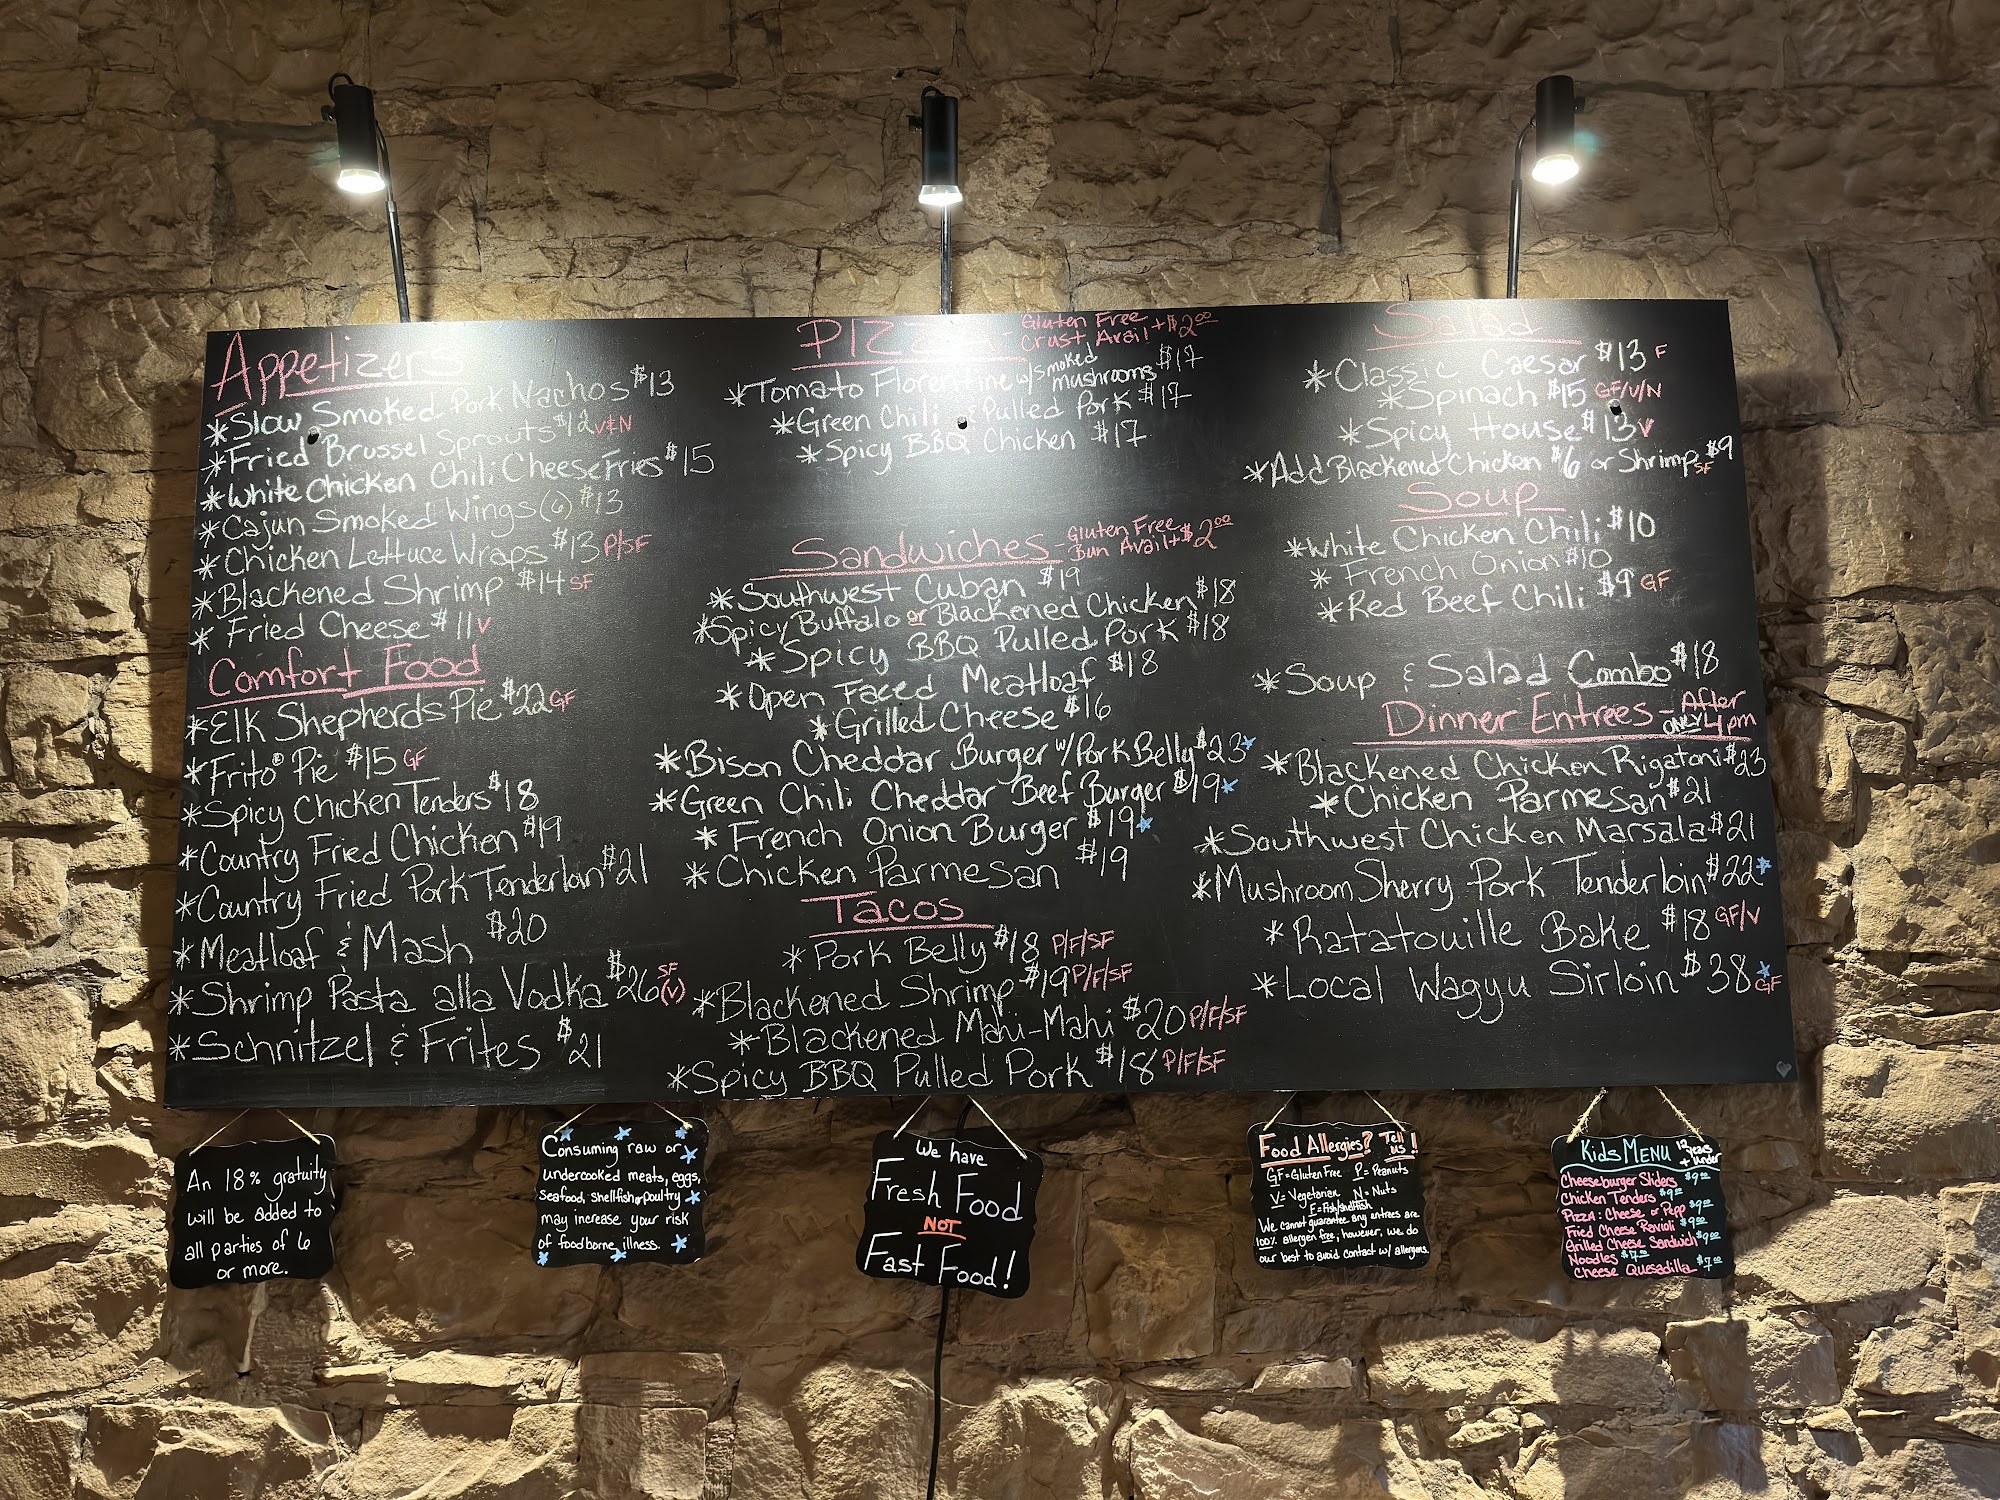 Appetizers
*Slow Smoked Pork Nachos $13
*Fried Brussel Sprouts $12 V&N
*White Chicken Chili Cheese Fries $15
*Cajun Smoked Wings (6) $13
*Chicken Lettuce Wraps $13 P/SF
*Blackened Shrimp $14 SF
*Fried Cheese $11 V
Comfort Food
*Elk Shepherds Pie $22 GF
*Frito® Pie $15 GF
*Spicy Chicken Tenders $18
*Country Fried Chicken $19
*Country Fried Pork Tenderloin $21
*Meatloaf & Mash $20
*Shrimp Pasta alla Vodka $26 SF (V)
*Schnitzel & Frites $21
PIZZA - Gluten Free
Crust Avail + $2.00
*Tomato Florentine w/smoked mushrooms $17
*Green Chili & Pulled Pork $17
*Spicy BBQ Chicken $17
Sandwiches - Gluten Free
Bun Avail + $2.00
*Southwest Cuban $19
*Spicy Buffalo or Blackened Chicken $18
*Spicy BBQ Pulled Pork $18
*Open Faced Meatloaf $18
*Grilled Cheese $16
*Bison Cheddar Burger w/Pork Belly $23*
*Green Chili Cheddar Beef Burger $19*
*French Onion Burger $19*
*Chicken Parmesan $19
Tacos
*Pork Belly $18 P/F/SF
*Blackened Shrimp $19 P/F/SF
*Blackened Mahi-Mahi $20 P/F/SF
*Spicy BBQ Pulled Pork $18 P/F/SF
Salad
*Classic Caesar $13 F
*Spinach $15 GF/V/N
*Spicy House $13 V
*Add Blackened Chicken $6 or Shrimp SF $9
Soup
*White Chicken Chili $10
*French Onion $10
*Red Beef Chili $9 GF
*Soup & Salad Combo $18
Dinner Entrees - After
ONLY 4pm
*Blackened Chicken Rigatoni $23
*Chicken Parmesan $21
*Southwest Chicken Marsala $21
*Mushroom Sherry Pork Tenderloin $22*
*Ratatouille Bake $18 GF/V
*Local Wagyu Sirloin $38* GF
An 18% gratuity
will be added to
all parties of 6
or more.
Consuming raw or
undercooked meats, eggs,
seafood, shellfish or poultry
may increase your risk
of foodborne illness.
We have
Fresh Food
NOT
Fast Food!
Food Allergies? Tell us!
GF=Gluten Free P=Peanuts
V=Vegetarian N=Nuts
F=Fish/shellfish
We cannot guarantee any entrees are
100% allergen free, however, we do
our best to avoid contact w/ allergens.
Kids MENU 12 years + under
Cheeseburger Sliders $9.00
Chicken Tenders $9.00
PIZZA: Cheese or Pepp $9.00
Fried Cheese Ravioli $9.00
Grilled Cheese Sandwich $9.00
Noodles $7.00
Cheese Quesadilla $7.00